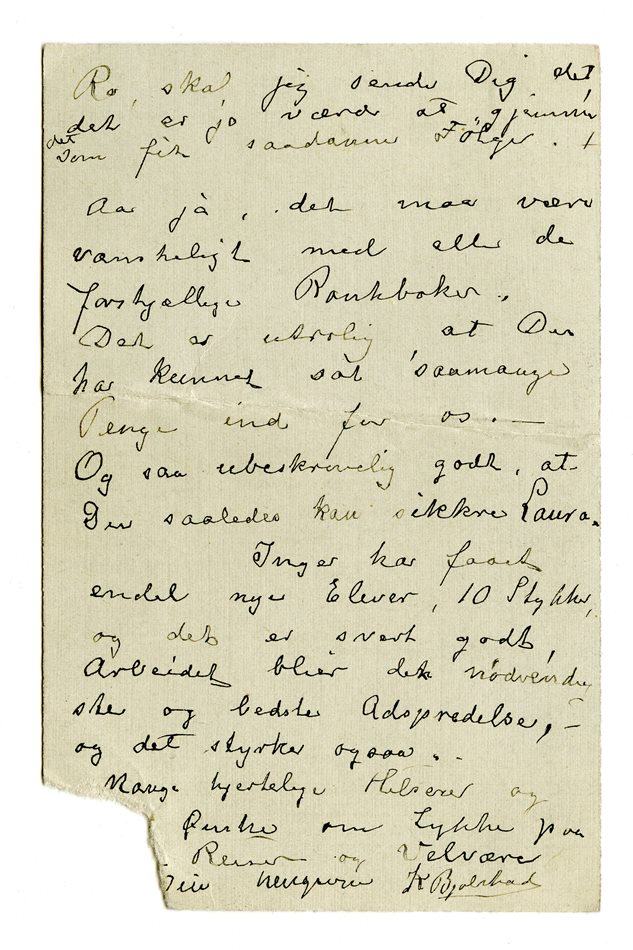 Ro, skal jeg sende Dig det
det er jo værd at "gjemme"
det som fik saadanne Følger. +
Aa ja, det maa være
vanskeligt med alle de
forskjællige Bankbøker.
Det er utrolig at Du
har kunnet sat saamange
Penge ind for os. —
Og saa ubeskrivelig godt, at
Du saaledes kan sikkre Laura.
Inger har faaet
endel nye Elever, 10 Stykker,
og det er svert godt,
Arbeidet blir den nødvendig
ste og bedste Adspredelse, —
og det styrker ogsaa..
Mange hjertelige Hilsener og
Ønske om Lykke paa
Reisen og Velvære
Din hengivne K Bjølstad